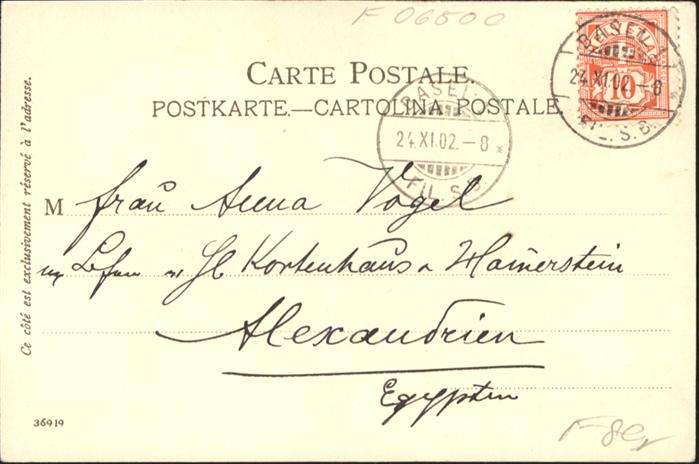 F 06500
CARTE POSTALE.
POSTKARTE.—CARTOLINA POSTALE.
BASEL
24.XI.02.–8
FIL. S.B.
10
BASEL
24.XI.02.–8
FIL. S.B.
Ce côté est exclusivement réservé à l'adresse.
M Frau Anna Vogel
Kortenhaus & Hamerstein
Alexandrien
Egypten
36919